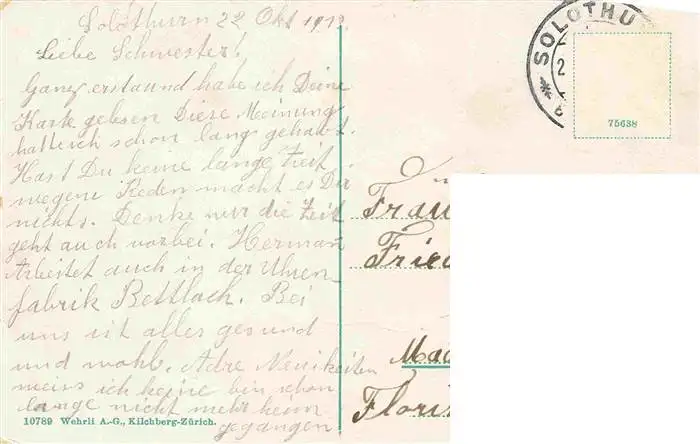 Solothurn 22 Okt 191
Liebe Schwester!
Ganz erstaund habe ich Deine
Karte gelesen Diese Meinung
hatte ich schon lang gehabt.
Hast Du keine lange Zeit
wegene Reden macht es Dir
nichts. Denke nur die Zeit
geht auch vorbei. Herman
Arbeitet auch in der Uhren
fabrik Bettlach. Bei
uns ist alles gesund
und wohl. Adre Neuikeiten
weiss ich keine bin schon
lange nicht mehr heim
gegangen
10789 Wehrli A.-G., Kilchberg-Zürich.
SOLOTHU
2
75638
Frau
Fried
Mad
Flori